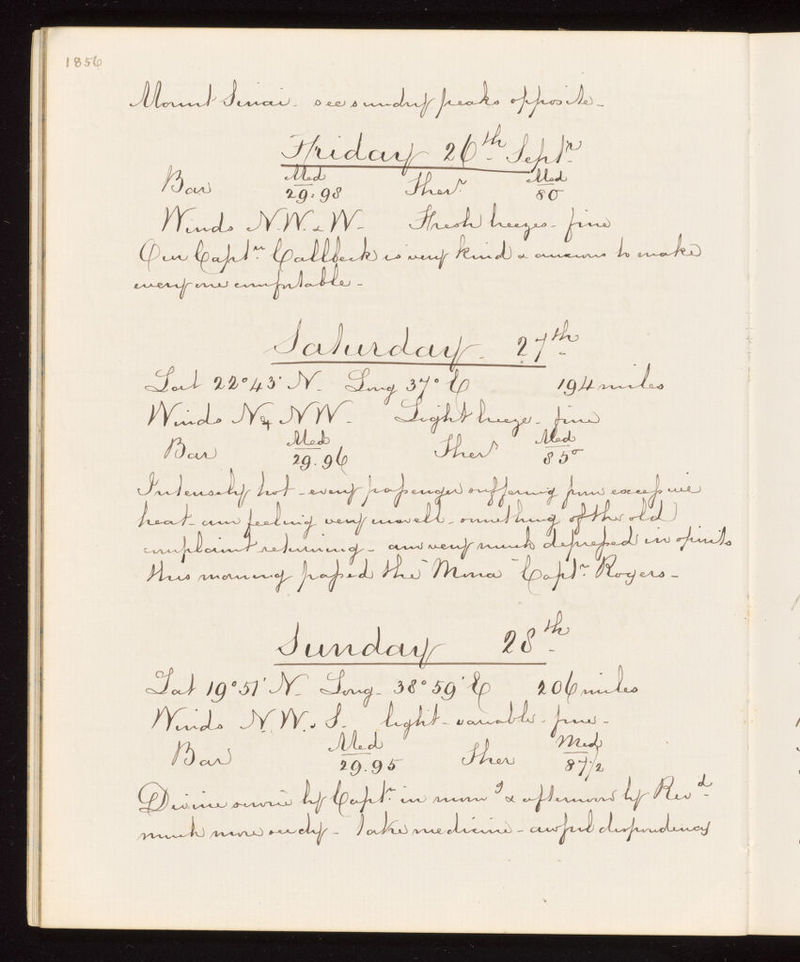 1856
Mount Sinai. see sundry peaks opposite -
Friday 26th Septr
Bar Med 29.98 Ther. Med 80
Winds N.W. & W - Fresh breezes - fine
Our Captn Callbeck is very kind & anxious to make
every one comfortable -
Saturday - 27th
Lat 22°43' N - Long 37° E 194 miles
Winds N & NW - Light breeze - fine
Bar Med 29.96 Ther Med 85°
Intensely hot - every passenger suffering from excessive
heat - am feeling very unwell - something of the old
complaint returning - am very much depressed in spirits
this morning passed the "Mona" Captn Rogers -
Sunday 28th
Lat 19°51' N - Long - 38°59' E 206 miles
Winds N.W. & S. light - variable - fine -
Bar Med 29.95 Ther Med 87½
Divine service by Captn in morng & afternoon by Revd -
much more seedy - take medicine - awful despondency